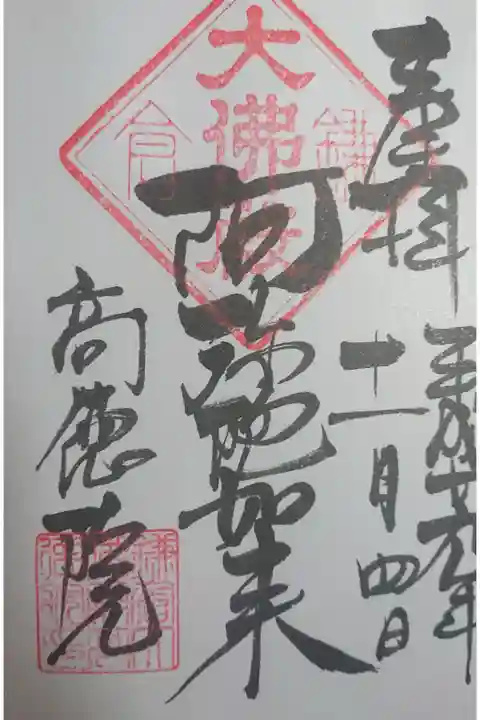 奉拝
平成年
十一月四日
大佛殿
鎌
倉
阿彌陀如来
高徳院